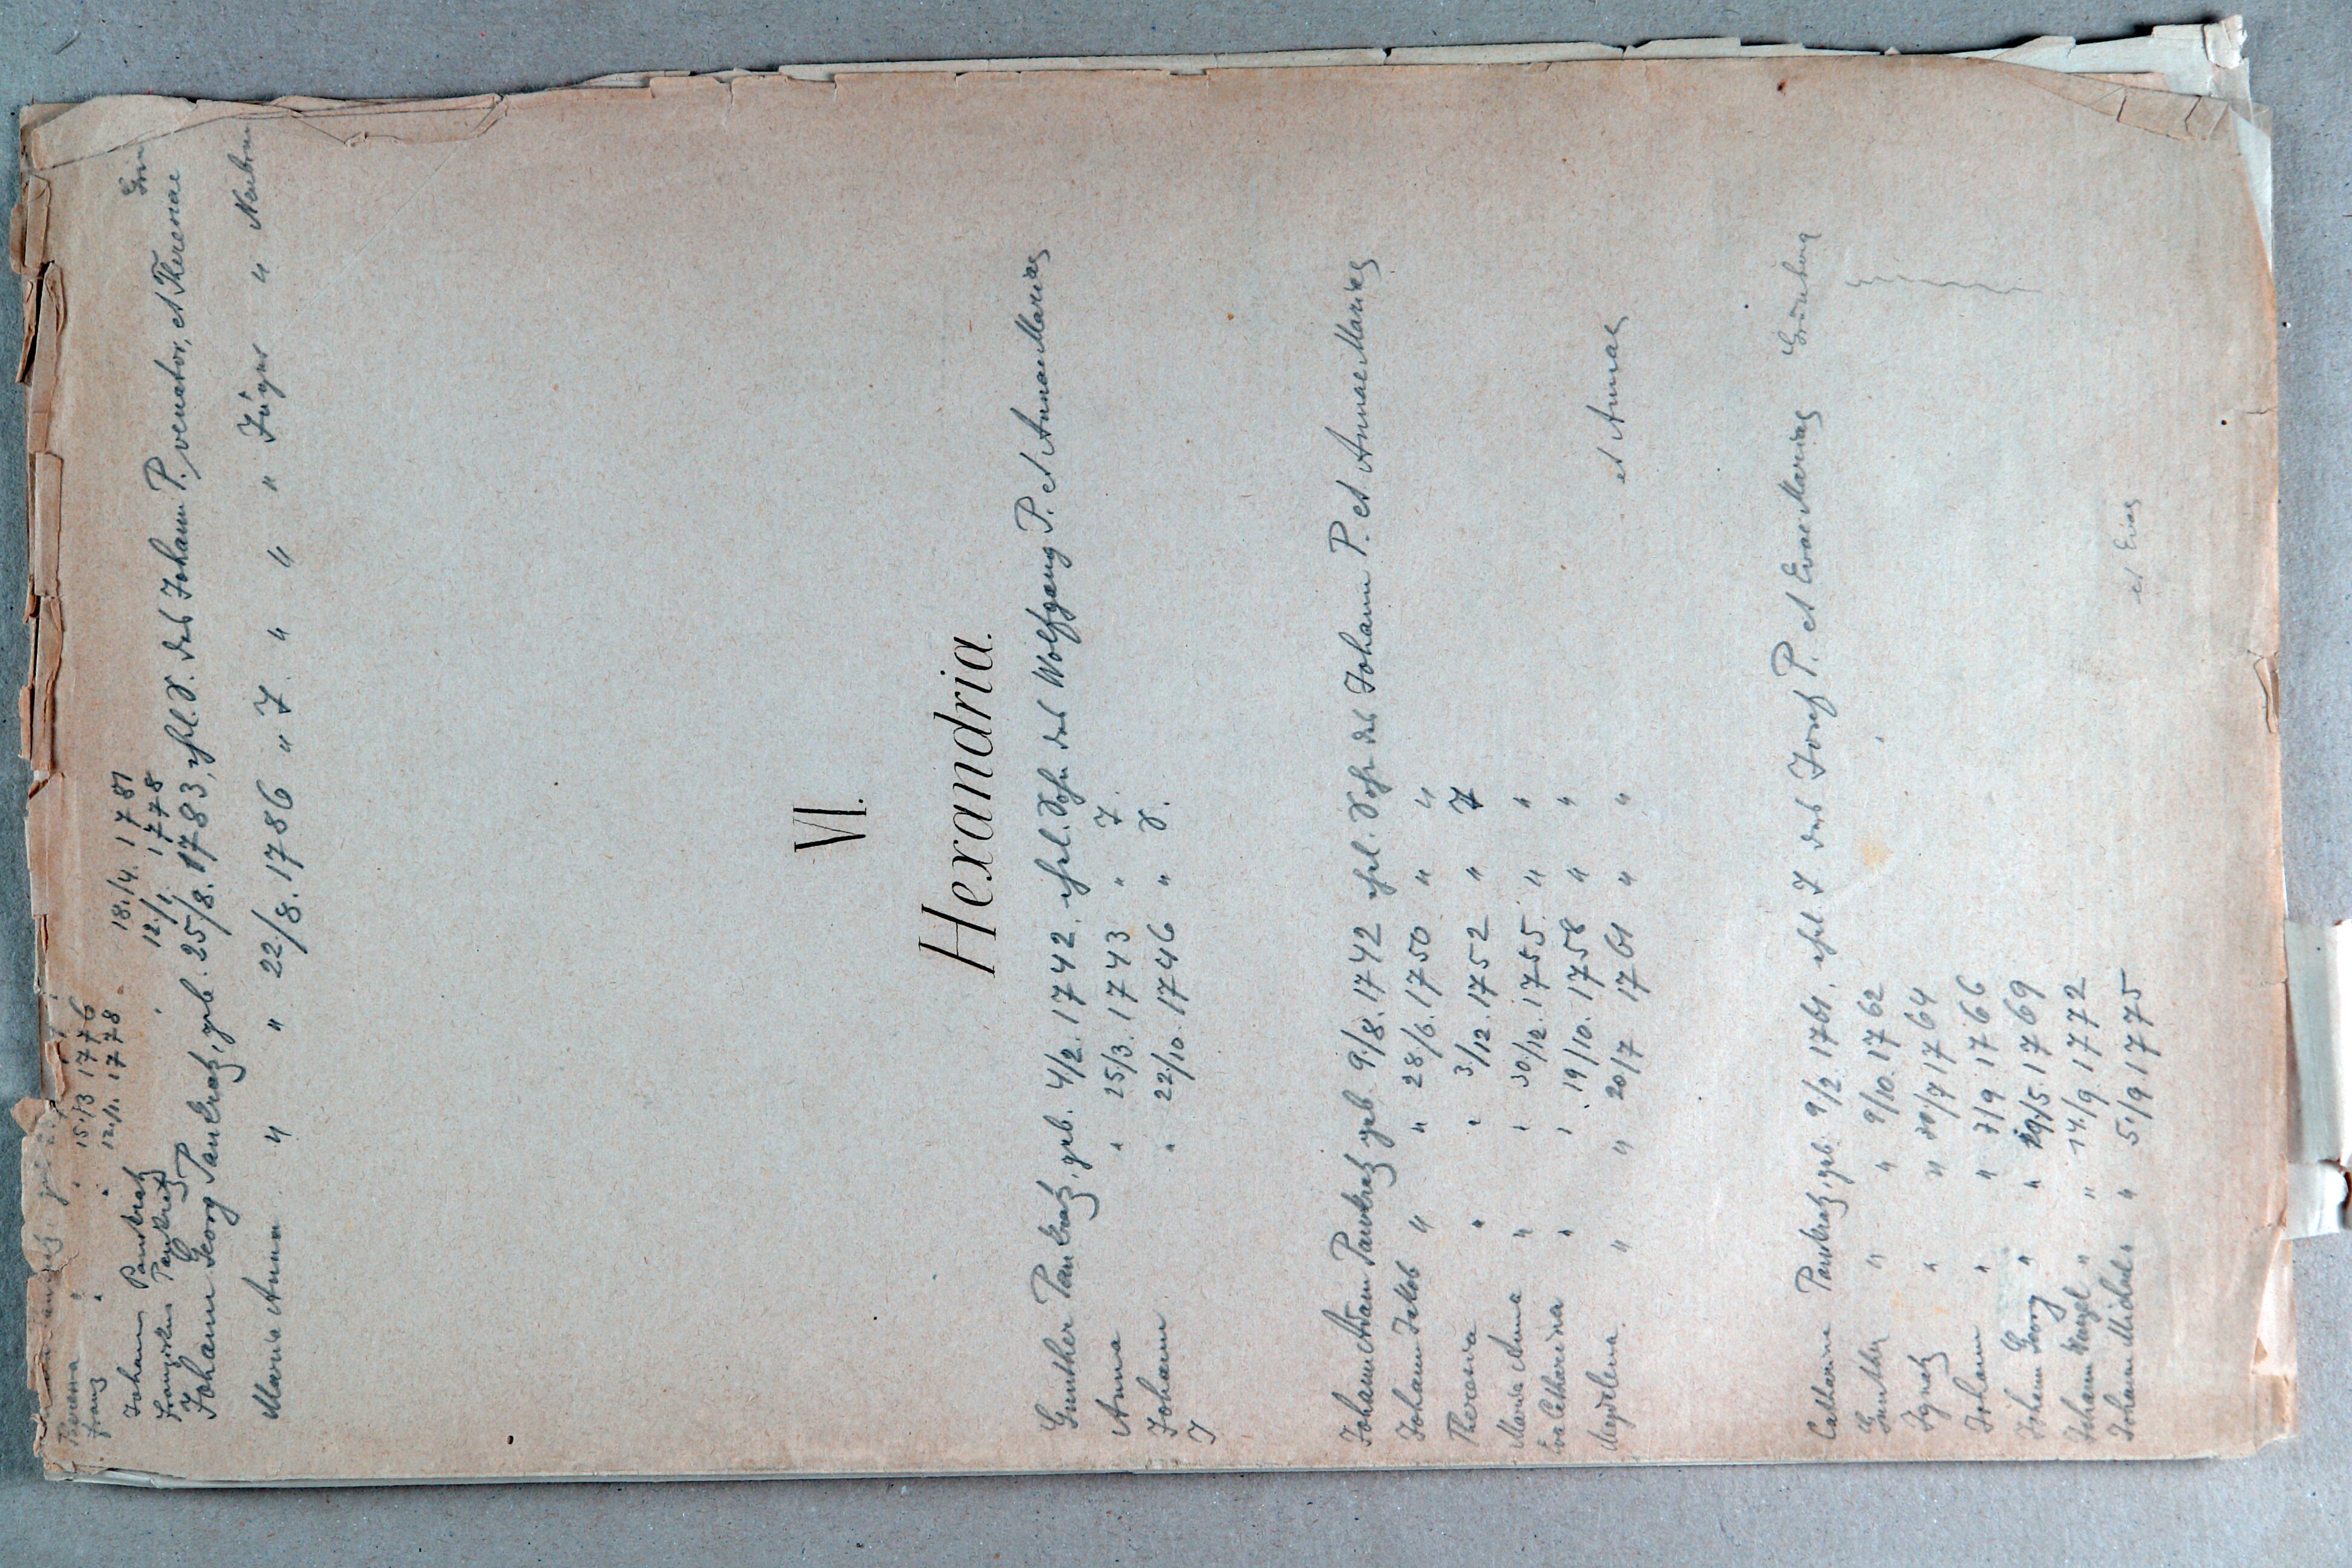 Theresia " " 15./3 1776
Franz " " 12./1. 1778
Johann Pankratz 18./4. 1781
Franziska Pankratz 12./1. 1778
Johann Georg Pankratz, geb. 25/8. 1783, ehel. S. des Johann P. venator, et Theresiae
Maria Anna " " 22/8. 1786 " T. " " " Jäger "
VI.
Hexandria.
Gunther Pankratz, geb. 4/2. 1742, ehel. Sohn des Wolfgang P. et Annae Mariae
Anna " 25/3. 1743 " T.
Johann " 22/10. 1746 " S.
J
Johann Adam Pankratz geb. 9./8. 1742 ehel. Sohn des Johann P. et Annae Mariae
Johann Jakob " " 28/6. 1750 " "
Theresia " " 3/12. 1752 " T
Maria Anna " " 30/12. 1755. " "
Eva Catharina " " 19/10. 1758 " "
Magdalena " " 20/7 1761 " " et Annae
Catharina Pankratz, geb. 9/2. 1761. ehel. T des Josef P. et Evae Mariae Grünberg
Gunther " " 9/10. 1762
Ignatz " " 30/7 1764
Johann " " 7/9 1766
Johann Georg " " 29/5. 1769
Johann Wenzel " " 14./9. 1772
Johann Michael " " 5./9 1775 et Evae